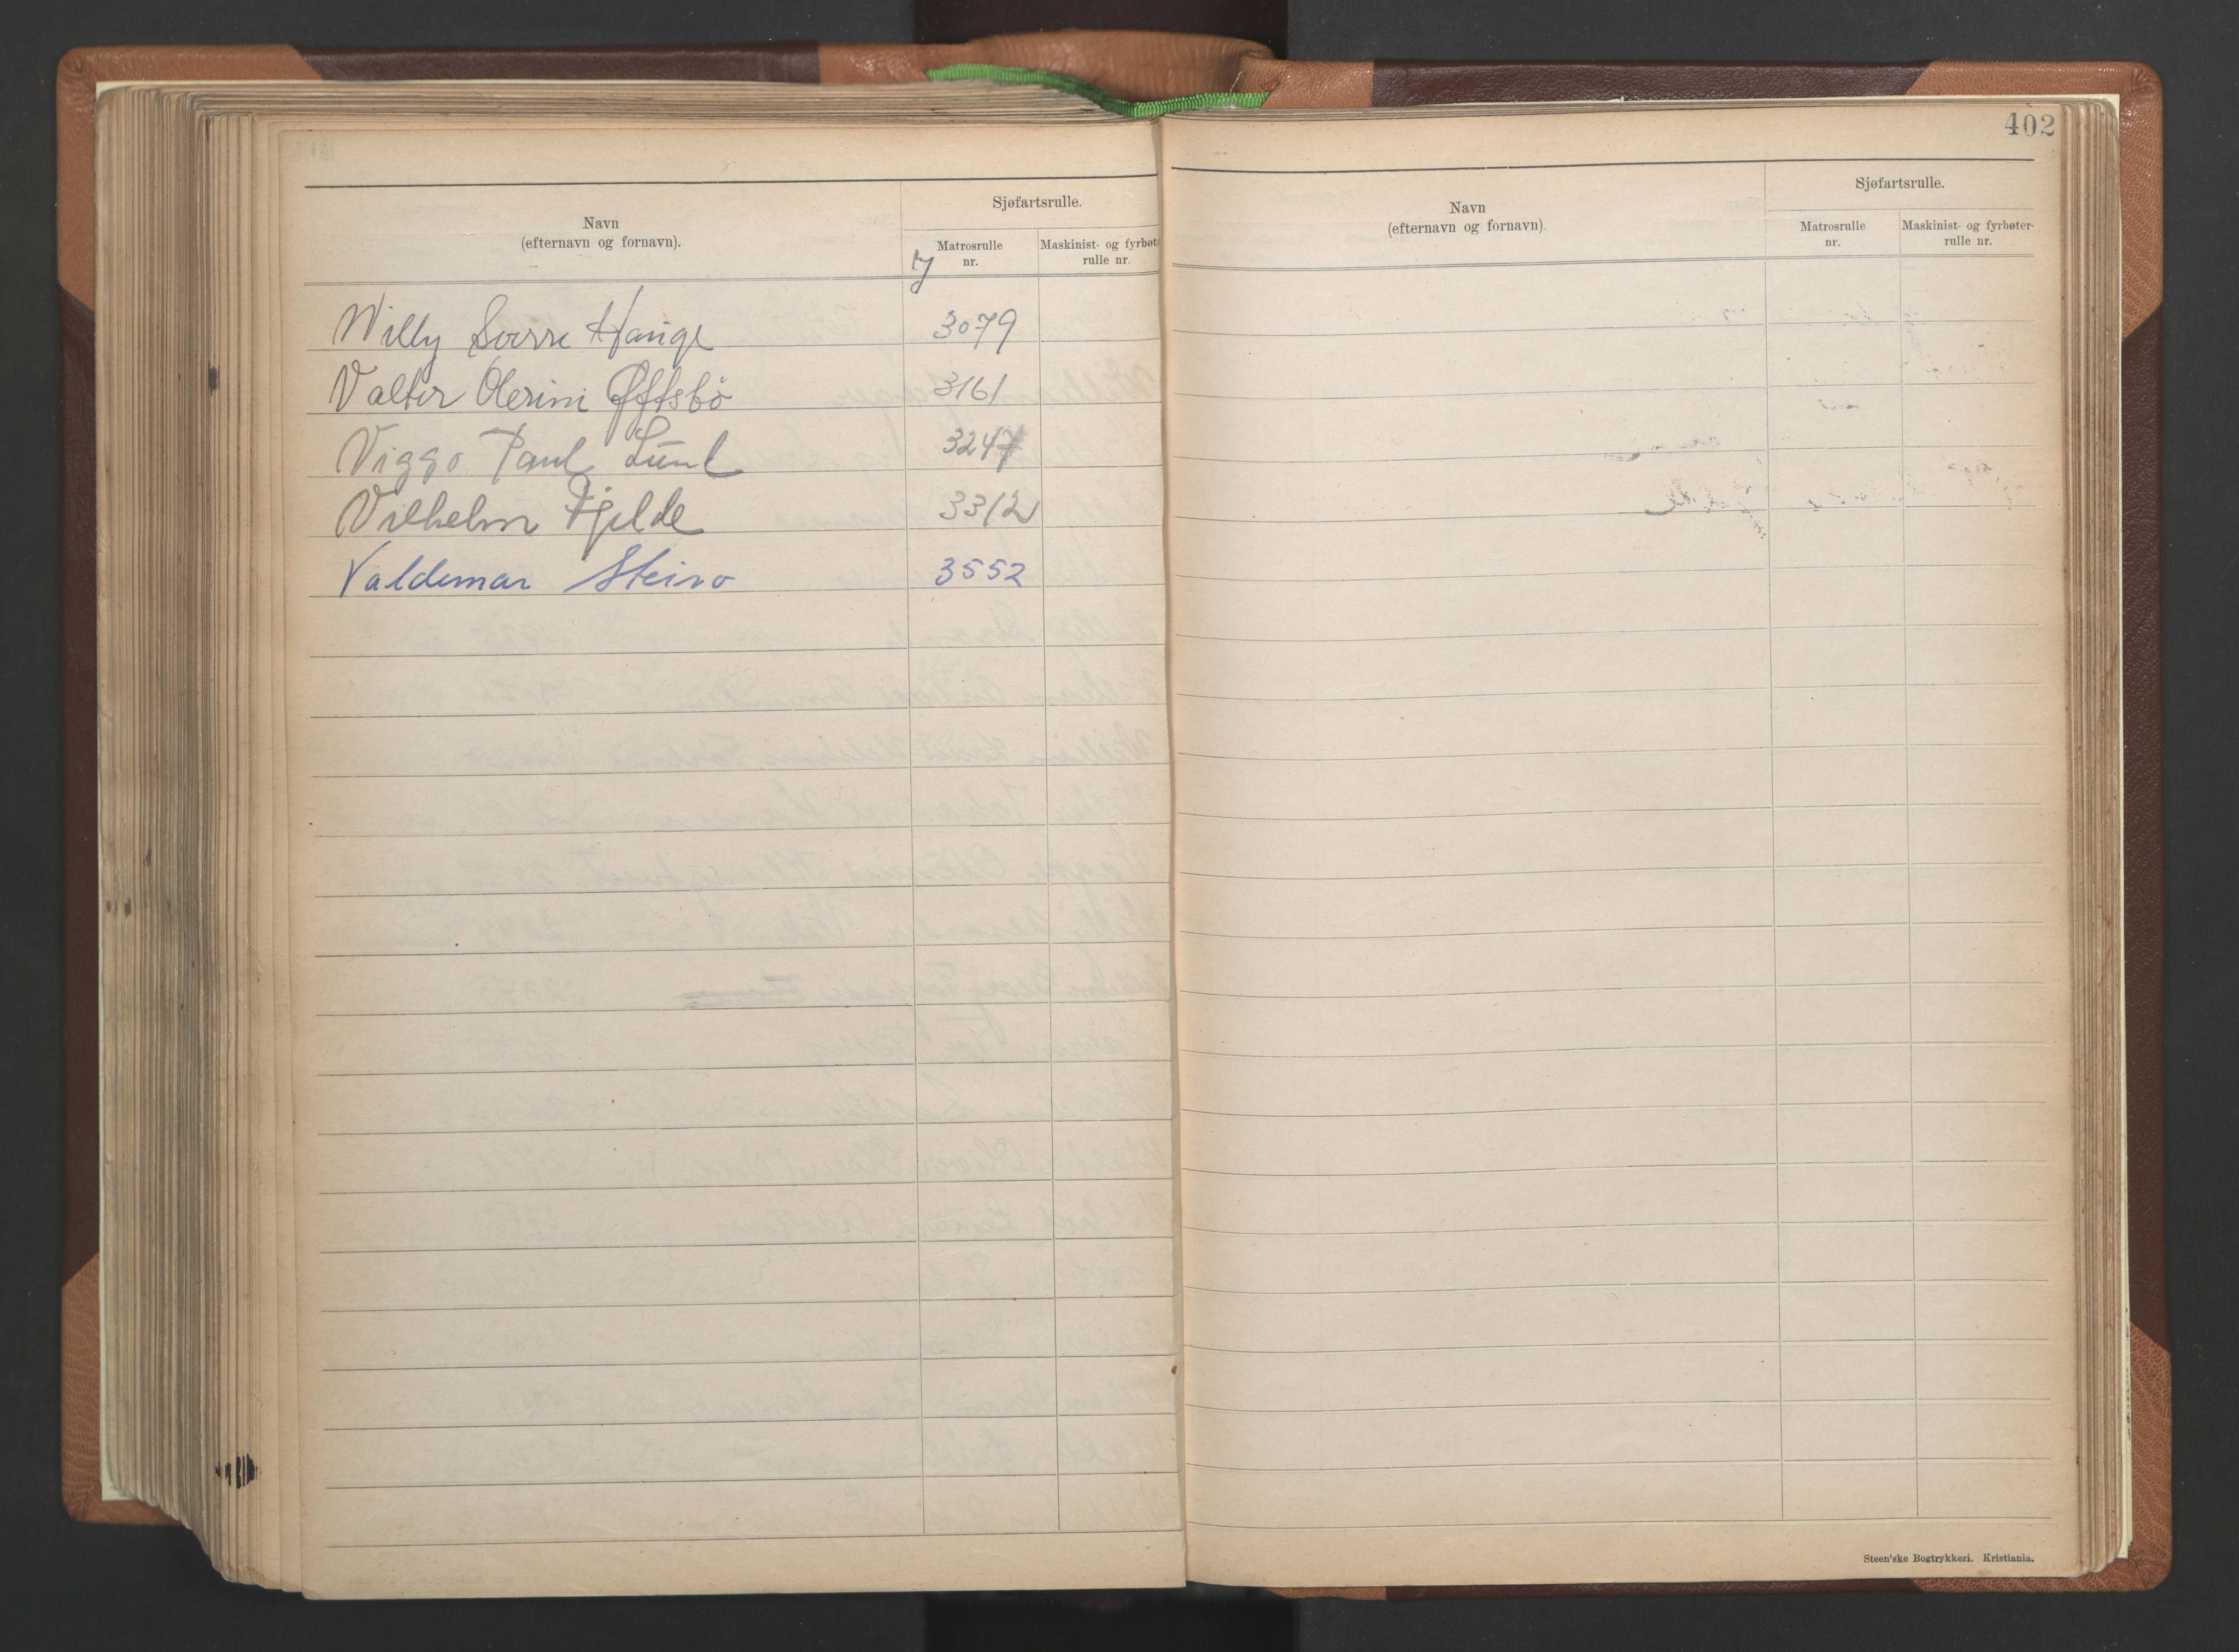 Navn
(efternavn og fornavn).
Sjøfartsrulle.
Matrosrulle
nr.
Maskinist- og fyrbøt
rulle nr.
Willy Sverre Hauge 3079
Valter Olerini Øftsbö 3161
Viggo Paul Lund 3247
Vilhelm Fjelde 3312
Valdemar Steiro 3552
402
Navn
(efternavn og fornavn).
Sjøfartsrulle.
Matrosrulle
nr.
Maskinist- og fyrbøter-
rulle nr.
Steen'ske Bogtrykkeri. Kristiania.